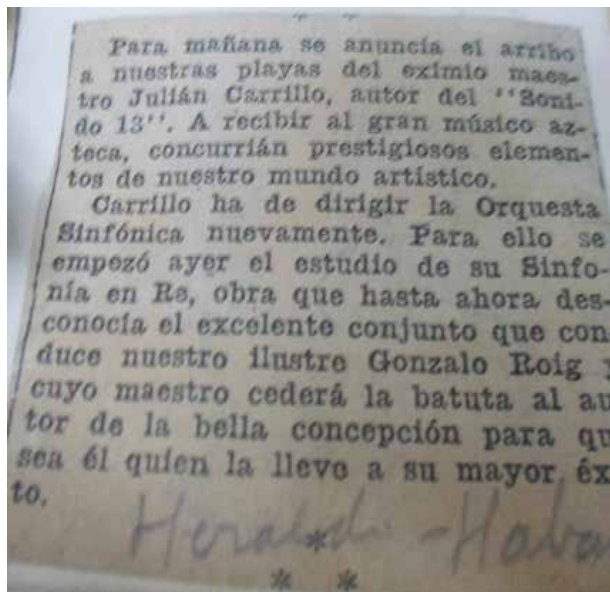 Para mañana se anuncia el arribo
a nuestras playas del eximio maes-
tro Julián Carrillo, autor del "Soni-
do 13". A recibir al gran músico az-
teca, concurrián prestigiosos elemen-
tos de nuestro mundo artístico.
Carrillo ha de dirigir la Orquesta
Sinfónica nuevamente. Para ello se
empezó ayer el estudio de su Sinfo-
nía en Re, obra que hasta ahora des
conocía el excelente conjunto que con
duce nuestro ilustre Gonzalo Roig y
cuyo maestro cederá la batuta al au
tor de la bella concepción para qu
sea él quien la lleve a su mayor éx
to.
Herald - Haba
* * *